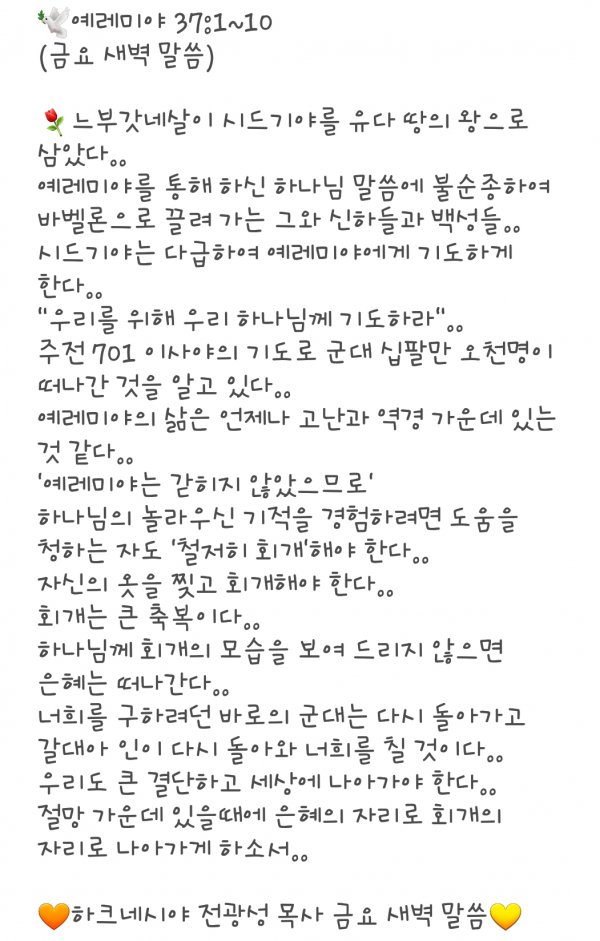 🕊예레미야 37:1~10
(금요 새벽 말씀)
🌹느부갓네살이 시드기야를 유다 땅의 왕으로
삼았다。。
예레미야를 통해 하신 하나님 말씀에 불순종하여
바벨론으로 끌려 가는 그와 신하들과 백성들。。
시드기야는 다급하여 예레미야에게 기도하게
한다。。
"우리를 위해 우리 하나님께 기도하라"。。
주전 701 이사야의 기도로 군대 십팔만 오천명이
떠나간 것을 알고 있다。。
예레미야의 삶은 언제나 고난과 역경 가운데 있는
것 같다。。
'예레미야는 갇히지 않았으므로'
하나님의 놀라우신 기적을 경험하려면 도움을
청하는 자도 '철저히 회개'해야 한다。。
자신의 옷을 찢고 회개해야 한다。。
회개는 큰 축복이다。。
하나님께 회개의 모습을 보여 드리지 않으면
은혜는 떠나간다。。
너희를 구하려던 바로의 군대는 다시 돌아가고
갈대아 인이 다시 돌아와 너희를 칠 것이다。。
우리도 큰 결단하고 세상에 나아가야 한다。。
절망 가운데 있을때에 은혜의 자리로 회개의
자리로 나아가게 하소서。。
🧡하크네시야 전광성 목사 금요 새벽 말씀💛